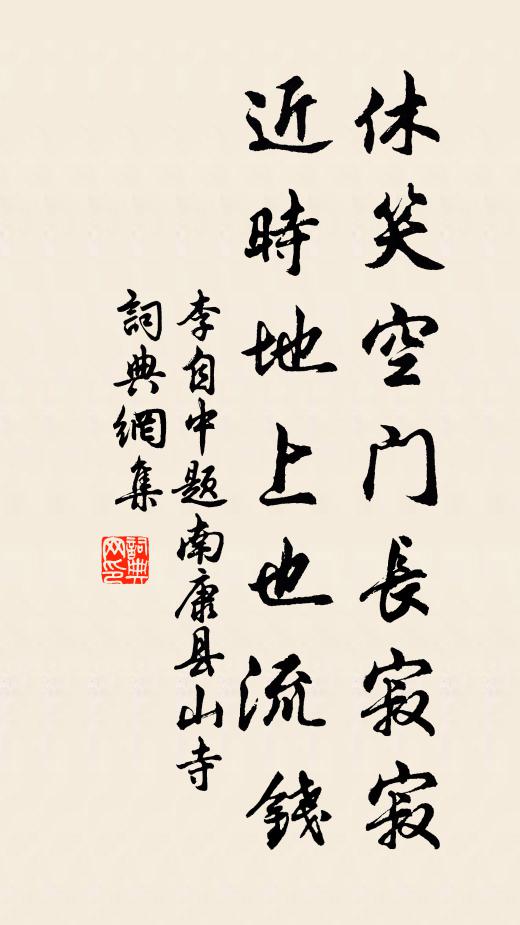 休笑空门長寂寂
近時地上也流錢
李自中题南康县山寺
詞典網集
詞典网印